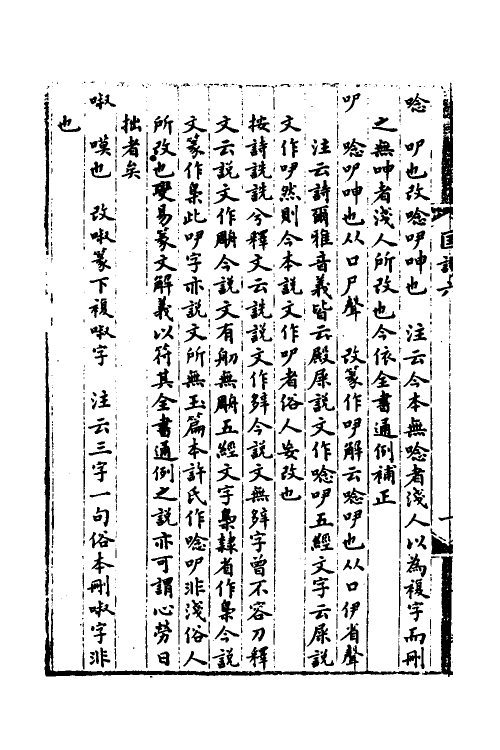 唸　吚也改唸吚呻也　注云今本無唸者淺人以為複字而刪
之無呻者淺人所改也今依全書通例補正
吚　唸吚呻也从口尸聲　改篆作吚解云唸吚也从口伊省聲
注云詩爾雅音義皆云殿屎說文作唸吚五經文字云屎說
文作吚然則今本說文作吚者俗人妄改也
按詩詵詵兮釋文云詵說文作𨐩今說文無𨐩字曾不容刀釋
文云說文作𦩍今說文有舠無𦩍五經文字梟隷省作梟今說
文篆作梟此吚字亦說文所無玉篇本許氏作唸吚非淺俗人
所改也變易篆文解義以符其全書通例之說亦可謂心勞日
拙者矣
嘁　嘆也　改嘁篆下複嘁字　注云三字一句俗本刪嘁字非
也
匡謬六